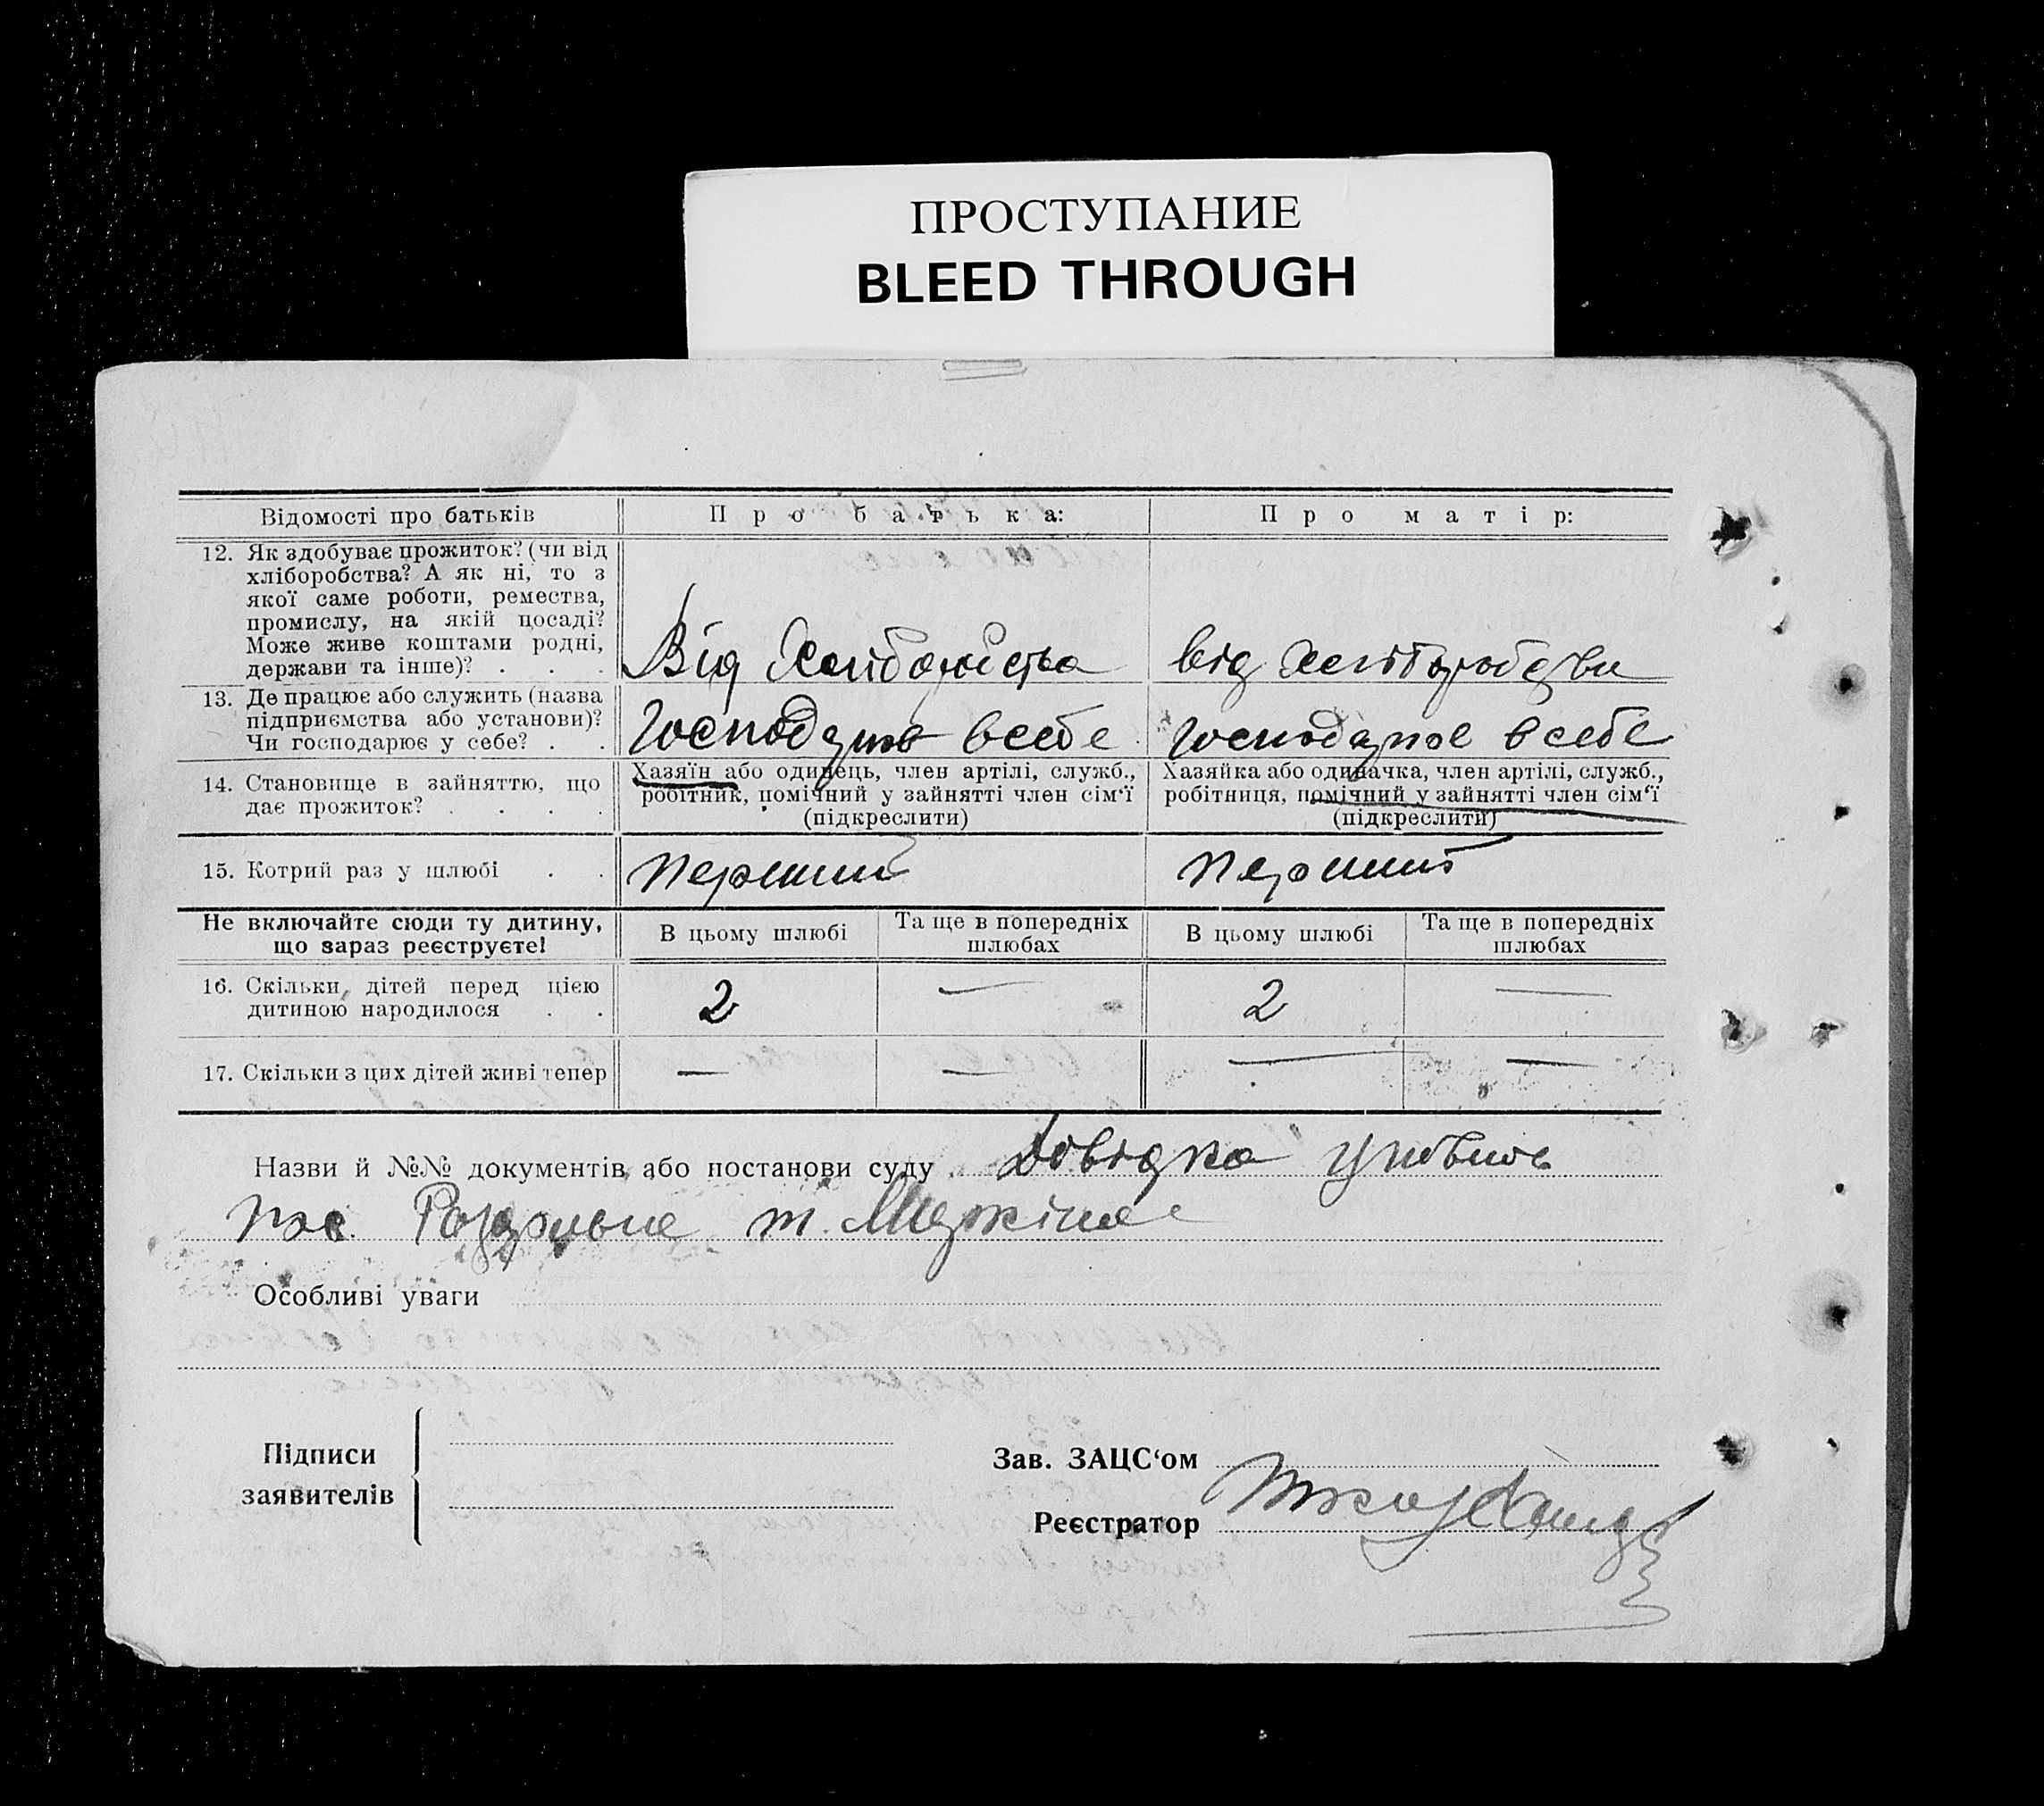 ПРОСТУПАНИЕ
BLEED THROUGH
Відомості про батьків
Про батька:
Про матір:
12. Як здобуває прожиток? (чи від
хліборобства? А як ні, то з
якої саме роботи, ремества,
промислу, на якій посаді?
Може живе коштами родні,
держави та інше)? . . .
Від
від
13. Де працює або служить (назва
підприємства або установи)?
Чи господарює у себе? . .
Господарює в себе
Господарює в себе
14. Становище в зайняттю, що
дає прожиток? . . . .
Хазяїн або одинець, член артілі, служб.,
робітник, помічний у зайнятті член сім‘ї
(підкреслити)
Хазяйка або одиначка, член артілі, служб.,
робітниця, помічний у зайнятті член сім‘ї
(підкреслити)
15. Котрий раз у шлюбі . .
перший
перший
Не включайте сюди ту дитину,
що зараз реєструєте!
В цьому шлюбі
Та ще в попередніх
шлюбах
В цьому шлюбі
Та ще в попередніх
шлюбах
16. Скільки дітей перед цією
дитиною народилося . .
2 — 2 —
17. Скільки з цих дітей живі тепер
— — — —
Назви й №№ документів або постанови суду Довідка
Особливі уваги
Підписи
заявителів
Зав. ЗАЦС‘ом
Реєстратор